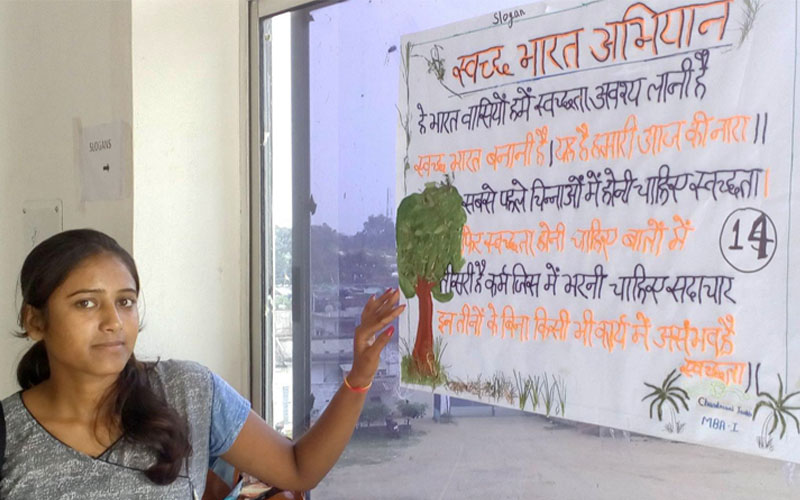 SLOGANS
Slogan
स्वच्छ भारत अभियान
हे भारत वासियों हमें स्वच्छता अवश्य लानी है
स्वच्छ भारत बनानी है। यह है हमारी आज की नारा।।
सबसे पहले चिन्ताओं में होनी चाहिए स्वच्छता।
फिर स्वच्छता होनी चाहिए बातों में
14
तीसरी है कर्म जिस में भरनी चाहिए सदाचार
इन तीनों के बिना किसी भी कार्य में असंभव है
स्वच्छता।।
MBA-I